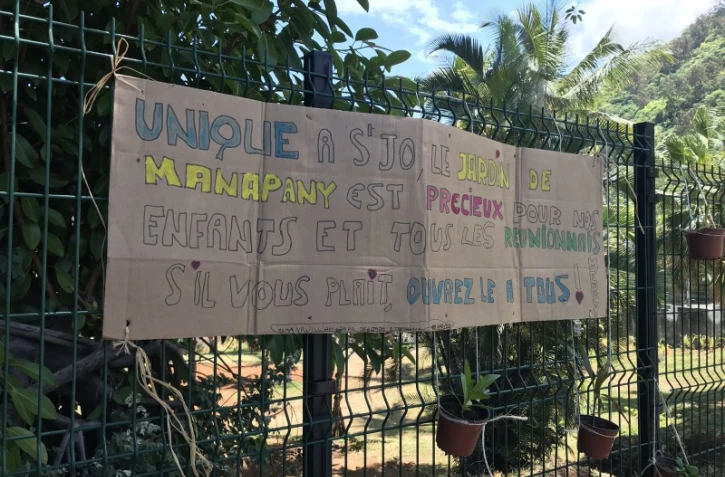 UNIQUE A S'JO, LE JARDIN DE
MANAPANY EST PRECIEUX POUR NOS
ENFANTS ET TOUS LES REUNIONNAIS
S'IL VOUS PLAIT, OUVREZ LE A TOUS !